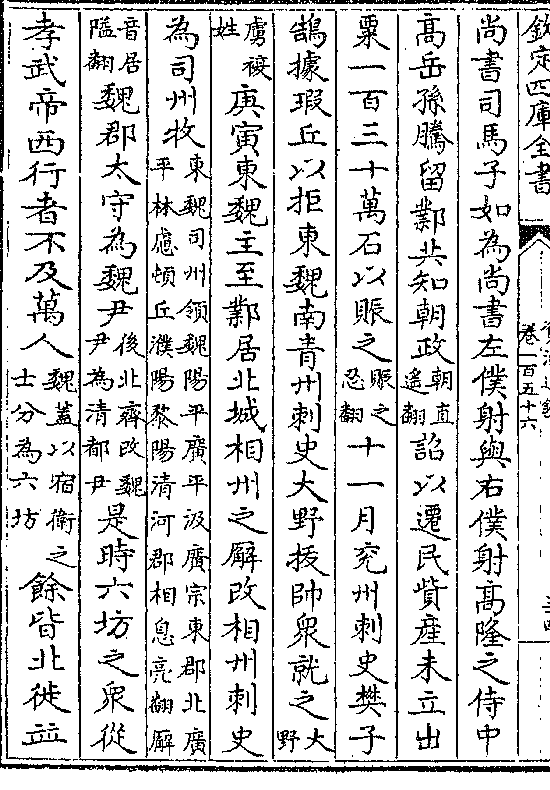 欽定四庫全書
卷一百五十六
尚書司馬子如為尚書左僕射與右僕射髙隆之侍中
髙岳孫騰留鄴共知朝政朝直遥翻詔以遷民貲産未立出
粟一百三十萬石以賑之賑之忍翻十一月兖州刺史樊子
鵠據瑕丘以拒東魏南青州刺史大野拔帥衆就之大野
虜複姓庚寅東魏主至鄴居北城相州之廨改相州刺史
為司州牧東魏司州領魏陽平廣平汲廣宗東郡北廣平林慮頓丘濮陽黎陽清河郡相息亮翻廨
音居隘翻魏郡太守為魏尹後北齊改魏尹為清都尹是時六坊之衆從
孝武帝西行者不及萬人魏蓋以宿衛之士分為六坊餘皆北徙竝